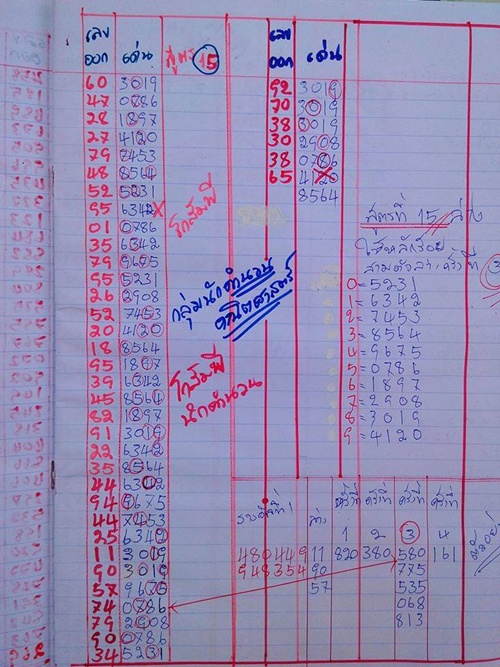 เลข ออก เด่น สูตร 15
60 3019
47 0786
28 1897
27 4120
79 7453
48 8564
52 5231
95 6342
01 0786
35 6342
79 9675
95 5231
26 2908
52 7453
20 4120
18 8564
95 1897
39 6342
45 8564
82 1897
91 3019
22 6342
35 8564
44 6342
94 9675
44 7453
25 6342
11 3019
90 3019
57 9675
74 0786
79 2908
90 0786
34 5231
โกสัมพี
กลุ่มนักคำนวน
คณิตศาสตร์
โกสัมพี
นักคำนวน
เลข ออก เด่น
92 3019
70 3019
38 3019
30 2908
38 0786
65 4120
8564
สูตรที่ 15 ล่าง
ใช้หลักร้อย
3
0=5231
1=6342
2=7453
3=8564
4=9675
5=0786
6=1897
7=2908
8=3019
9=4120
รางวัลที่ 1 ล่าง ตัวที่ 1 ตัวที่ 2 ตัวที่ 3 ตัวที่ 4
480449 11 820 380 580 161
948354 90 775
57 535
068
813